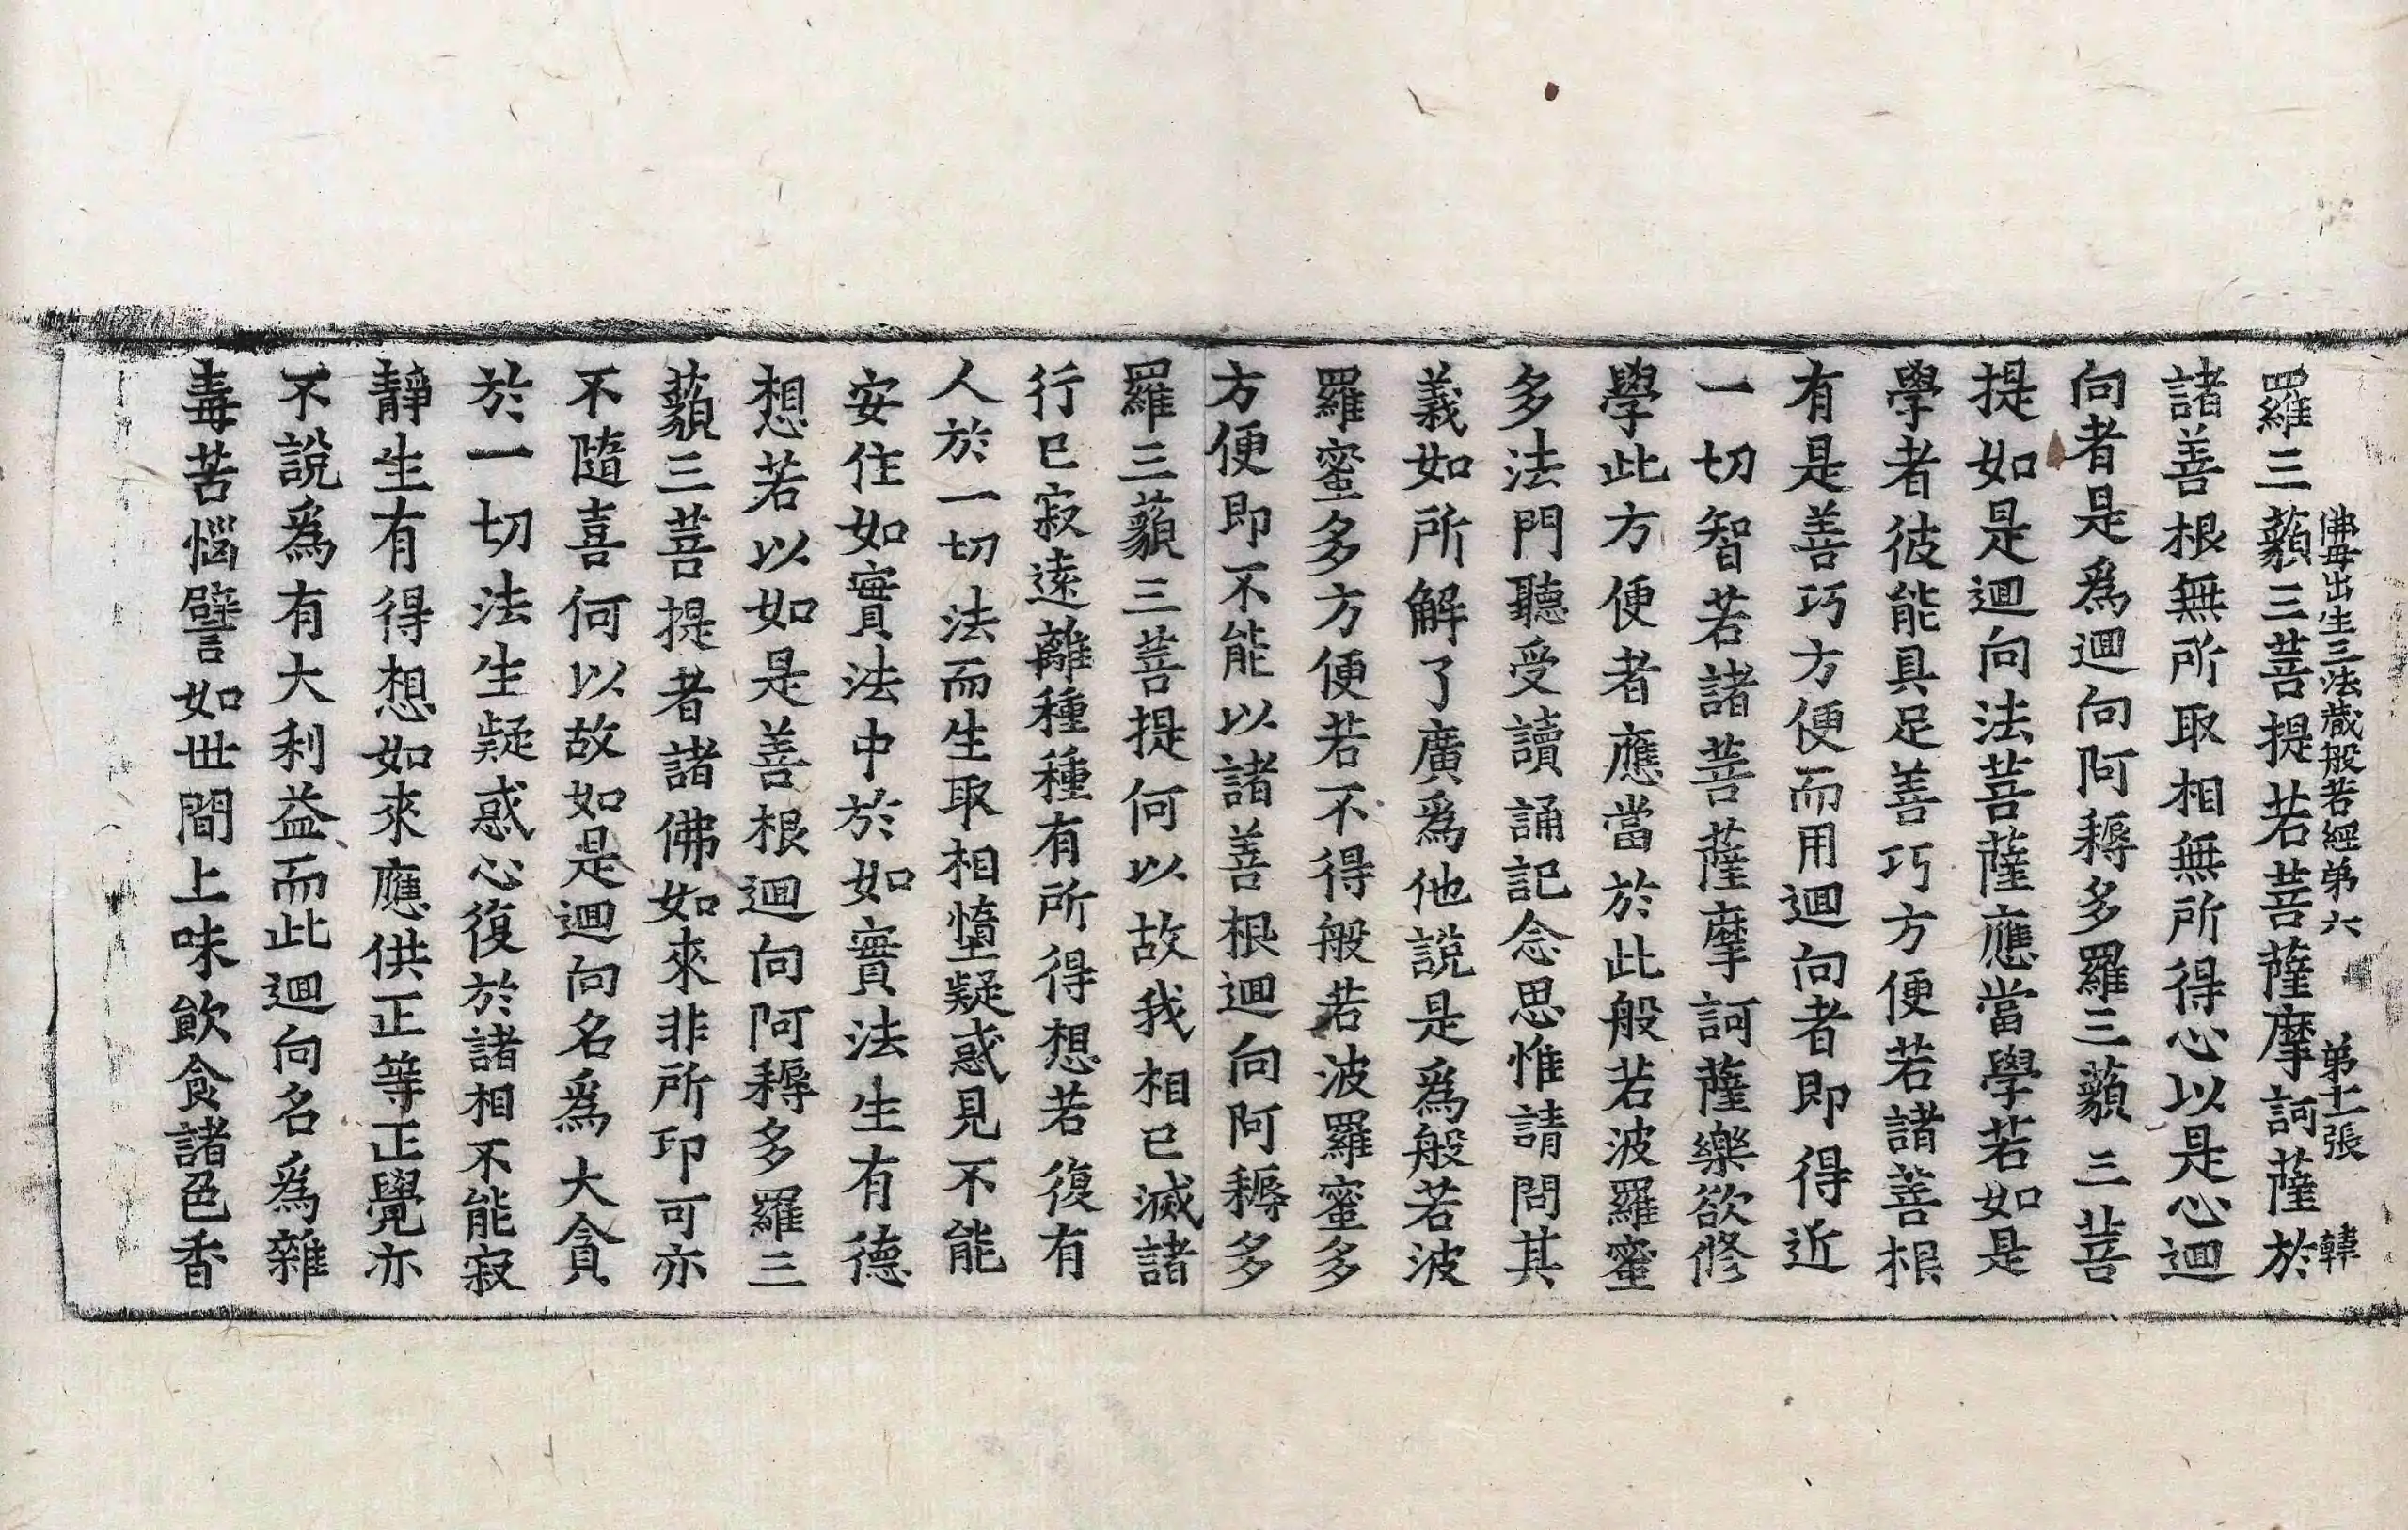 佛母出生三法藏般若經第六 第十二張 韓
羅三藐三菩提若菩薩摩訶薩於
諸善根無所取相無所得心以是心迴
向者是爲迴向阿耨多羅三藐三菩
提如是迴向法菩薩應當學若如是
學者彼能具足善巧方便若諸善根
有是善巧方便而用迴向者即得近
一切智若諸菩薩摩訶薩樂欲修
學此方便者應當於此般若波羅蜜
多法門聽受讀誦記念思惟請問其
義如所解了廣爲他說是爲般若波
羅蜜多方便若不得般若波羅蜜多
方便即不能以諸善根迴向阿耨多
羅三藐三菩提何以故我相已滅諸
行已寂遠離種種有所得想若復有
人於一切法而生取相墮疑惑見不能
安住如實法中於如實法生有德
想若以如是善根迴向阿耨多羅三
藐三菩提者諸佛如來非所印可亦
不隨喜何以故如是迴向名爲大貪
於一切法生疑惑心復於諸相不能寂
靜生有得想如來應供正等正覺亦
不說爲有大利益而此迴向名爲雜
毒苦惱譬如世間上味飲食諸色香